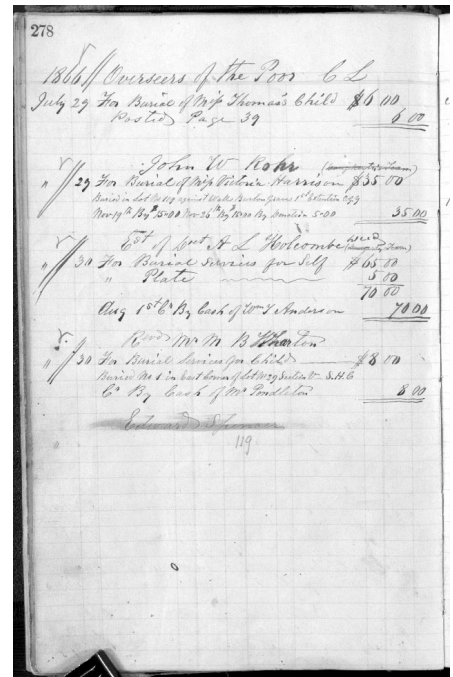 278
1866 Overseers of the Poor C L
July 29 For Burial of Miss Thomas's Child $6 00
Posted Page 39 6 00
John W Rohr
" 29 For Burial of Miss Victoria Harrison $35 00
Buried in Lot No against Walk 1st Section
Nov 19th By $ 15=00 Nov 26th By 15=00 By Donation 5=00 35 00
Est of Lieut A L Holcombe
" 30 For Burial Services for Self $65 00
" Plate 5 00
70 00
Aug 1st Cr By Cash of Wm T Anderson 70 00
Revd Mr M B Wharton
" 30 For Burial Services for Child $8 00
Buried No 1 in East corner of Lot No 29 Section V S.H.C
Cr By Cash of Mr Pendleton 8 00
Edward Spencer
119